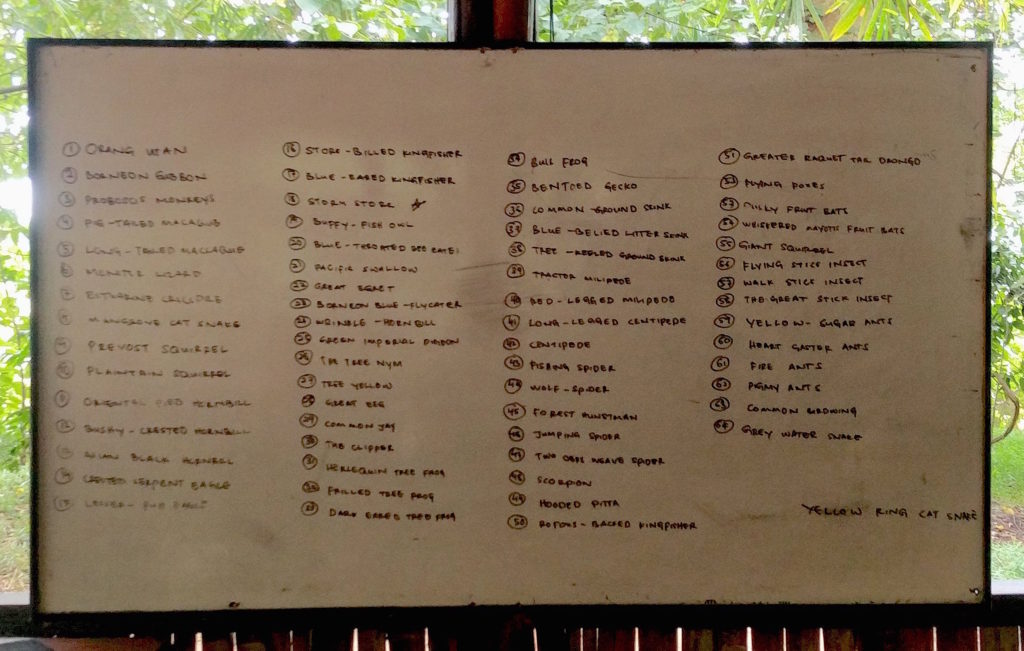 1 ORANG UTAN
2 BORNEON GIBBON
3 PROBOSCIS MONKEYS
4 PIG-TAILED MACAQUE
5 LONG-TAILED MACCAQUE
6 MONITOR LIZARD
7
8 MANGROVE CAT SNAKE
9 PREVOST SQUIRREL
10 PLAINTAIN SQUIRREL
11 ORIENTAL PIED HORNBILL
12 BUSHY-CRESTED HORNBILL
13 BLACK HORNBILL
14 CRESTED SERPENT EAGLE
15 LESSER-
16 STORK-BILLED KINGFISHER
17 BLUE-EARED KINGFISHER
18 STORM STORK
19 BUFFY-FISH OWL
20 BLUE-THROATED BEE EATER
21 PACIFIC SWALLOW
22 GREAT EGRET
23 BORNEON BLUE-FLYCATER
24 WRINKLE-HORNBILL
25 GREEN IMPERIAL PIGEON
26 THE TREE NYM
27 TREE YELLOW
28 GREAT EGG
29 COMMON JAY
30 THE CLIPPER
31 HERLEQUIN TREE FROG
32 FRILLED TREE FROG
33 DARK EARED TREE FROG
34 BULL FROG
35 BENTOED GECKO
36 COMMON-GROUND SKINK
37 BLUE-BELIED LITTER SKINK
38 TREE-KEELED GROUND SKINK
39 TRACTOR MILIPEDE
40 RED-LEGGED MILIPEDE
41 LONG-LEGGED CENTIPEDE
42 CENTIPEDE
43 FISHING SPIDER
44 WOLF-SPIDER
45 FOREST HUNSTMAN
46 JUMPING SPIDER
47 TWO ORBS WEAVE SPIDER
48 SCORPION
49 HOODED PITTA
50 ROFOUS-BACKED KINGFISHER
51 GREATER RAQUET TAIL DRONGO
52 FLYING FOXES
53 FRUIT BATS
54 WEISPERED MAYOTIS FRUIT BATS
55 GIANT SQUIRREL
56 FLYING STICK INSECT
57 WALK STICK INSECT
58 THE GREAT STICK INSECT
59 YELLOW-SUGAR ANTS
60 HEART GASTOR ANTS
61 FIRE ANTS
62 PIGMY ANTS
63 COMMON BIRDWING
64 GREY WATER SNAKE
YELLOW RING CAT SNAKE